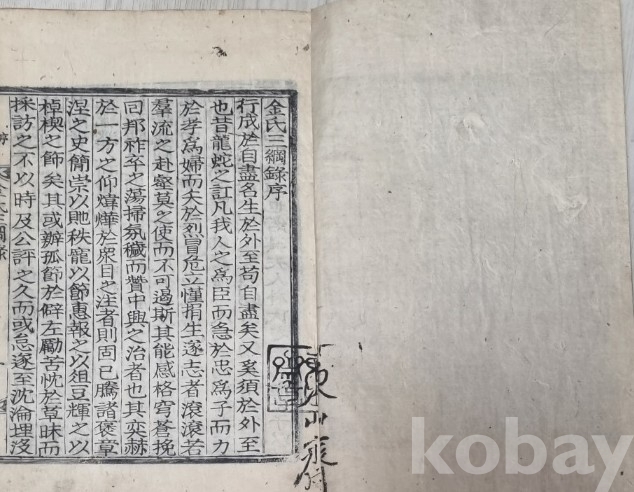 金氏三綱錄序
行成於自盡名生於外至苟自盡矣又奚須於外至
也昔龍蛇之訌凡我人之爲臣而急於忠爲子而力
於孝爲婦而夫於烈冒危立慬捐生遂志者滾滾若
羣流之赴壑莫之使而不可遏斯其能感格穹蒼挽
回邦祚卒之蕩掃氛穢而贊中興之治者也其奕赫
於一方之仰煒燁於衆目之注者則固已騰諸褒章
涅之史簡崇以貤秩寵以節惠報之以俎豆輝之以
棹楔之節矣其或辦孤節於僻左勵苦忱於草昧而
採訪之不以時及公評之久而或怠遂至沈淪埋沒
金氏三綱錄
序
山
kobay